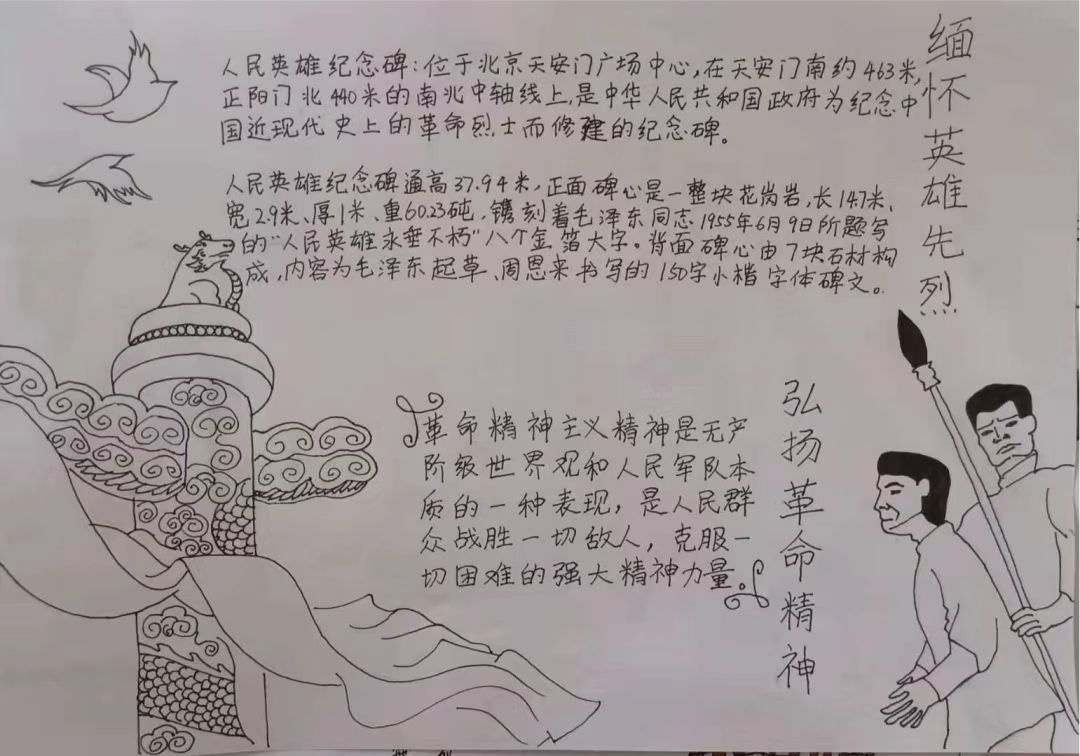 缅怀英雄先烈
人民英雄纪念碑：位于北京天安门广场中心，在天安门南约463米，
正阳门北440米的南北中轴线上，是中华人民共和国政府为纪念中
国近现代史上的革命烈士而修建的纪念碑。
人民英雄纪念碑通高37.94米，正面碑心是一整块花岗岩，长14.7米、
宽2.9米、厚1米、重60.23吨，镌刻着毛泽东同志1955年6月9日所题写
的“人民英雄永垂不朽”八个金箔大字。背面碑心由7块石材构
成，内容为毛泽东起草、周恩来书写的150字小楷字体碑文。
弘扬革命精神
革命精神主义精神是无产
阶级世界观和人民军队本
质的一种表现，是人民群
众战胜一切敌人，克服一
切困难的强大精神力量。